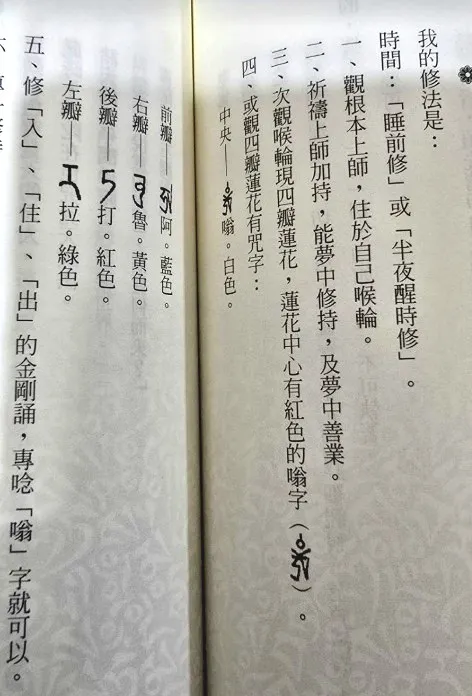 我的修法是：
時間：「睡前修」或「半夜醒時修」。
一、觀根本上師，住於自己喉輪。
二、祈禱上師加持，能夢中修持，及夢中善業。
三、次觀喉輪現四瓣蓮花，蓮花中心有紅色的嗡字（）。
四、或觀四瓣蓮花有咒字：
中央——嗡。白色。
前瓣——阿。藍色。
右瓣——魯。黃色。
後瓣——打。紅色。
左瓣——拉。綠色。
五、修「入」、「住」、「出」的金剛誦，專唸「嗡」字就可以。